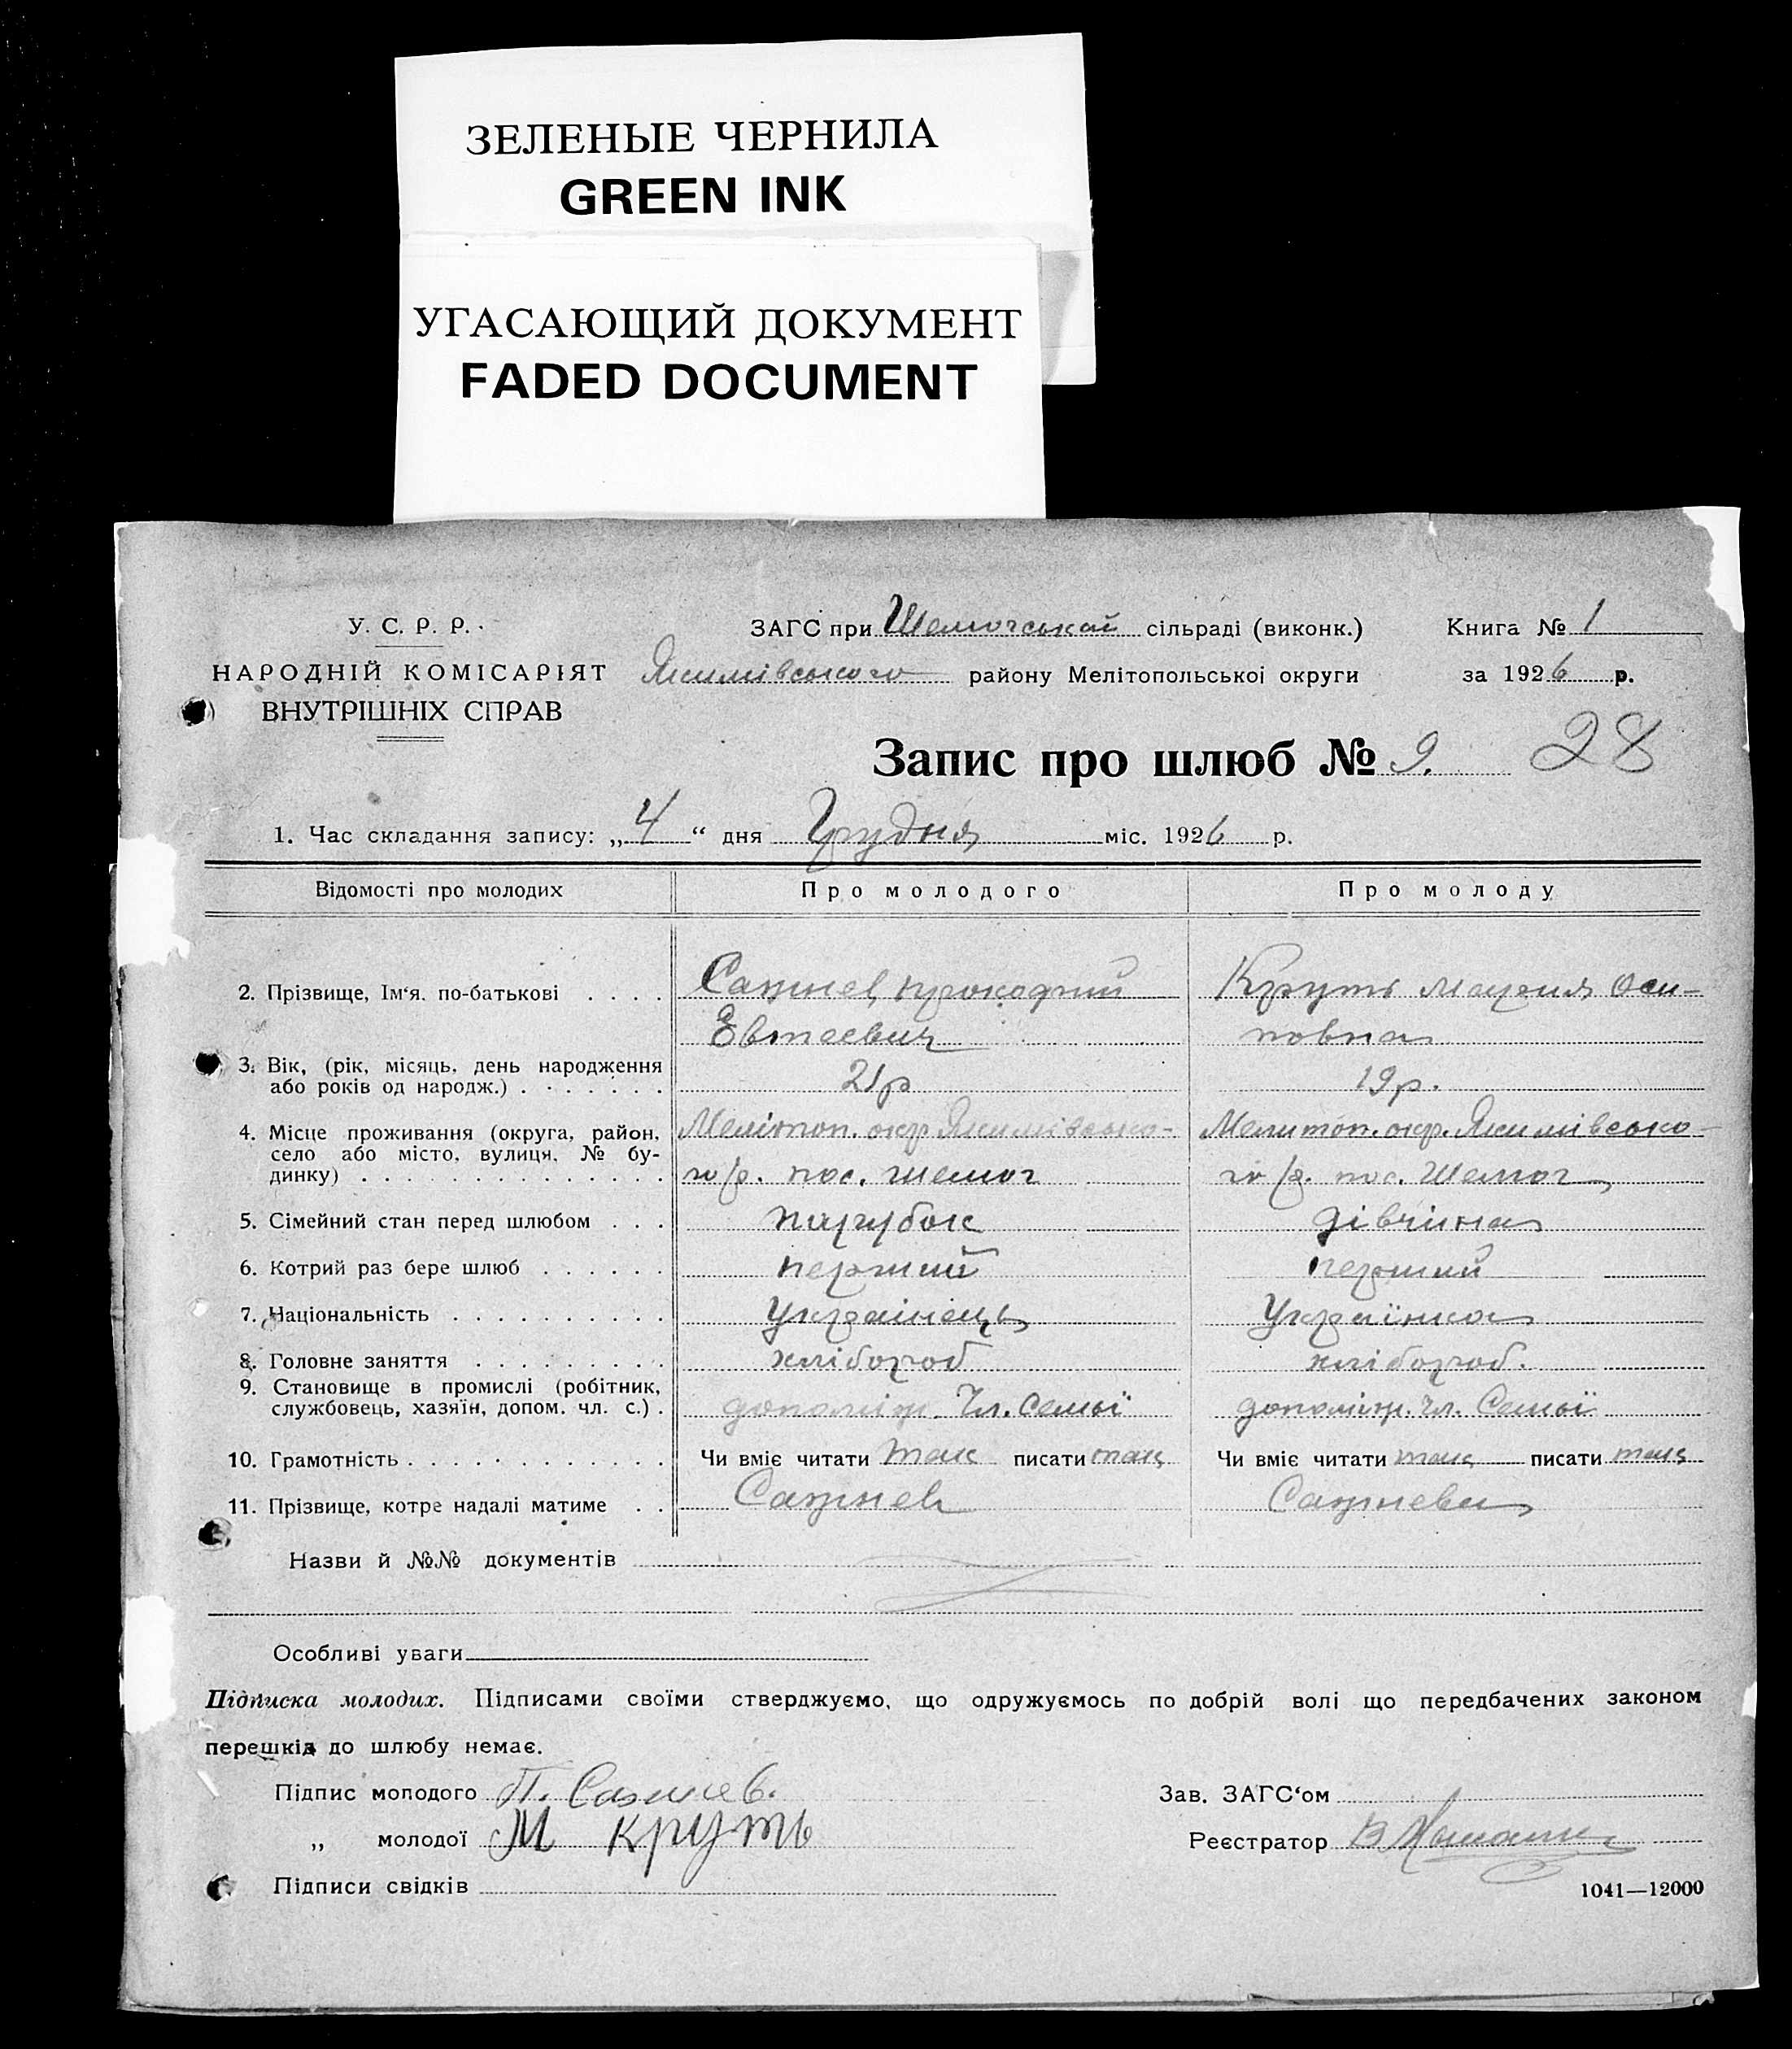 ЗЕЛЕНЫЕ ЧЕРНИЛА
GREEN INK
УГАСАЮЩИЙ ДОКУМЕНТ
FADED DOCUMENT
У. С. Р. Р.
НАРОДНІЙ КОМІСАРІЯТ
ВНУТРІШНІХ СПРАВ
ЗАГС при Шемогськой сільраді (виконк.)
Якимівського району Мелітопольської округи
Книга № 1
за 1926 р.
Запис про шлюб № 9. 28
1. Час складання запису: „4“ дня Грудня міс. 1926 р.
Відомості про молодих Про молодого Про молоду
2. Прізвище, Ім‘я, по-батькові . . . . Сажнев Прокофий Круть Мария Оси-
Евтеевич повна
3. Вік, (рік, місяць, день народження
або років од народж.) . . . . . . . 21 р 19 р.
4. Місце проживання (округа, район, Мелітоп. окр. Якимівсько- Мелитоп. окр. Якимівсько-
село або місто, вулиця, № бу-
динку) . . . . . . . . . . . . . . го р. пос. Шемог го р. пос. Шемог
5. Сімейний стан перед шлюбом . . . парубок дівчина
6. Котрий раз бере шлюб . . . . . . перший перший
7. Національність . . . . . . . . . . Українець Українка
8. Головне заняття . . . . . . . . . хлібороб хлібороб.
9. Становище в промислі (робітник,
службовець, хазяїн, допом. чл. с.) . допоміж. Чл. Семьї допоміж. Чл. Семьї
10. Грамотність . . . . . . . . . . . . Чи вміє читати так писати так Чи вміє читати так писати так
11. Прізвище, котре надалі матиме . . Сажнев Сажнева
Назви й №№ документів
Особливі уваги
Підписка молодих. Підписами своїми стверджуємо, що одружуємось по добрій волі що передбачених законом
перешкід до шлюбу немає.
Підпис молодого П. Сажнев.
„ молодої М Круть
Підписи свідків
Зав. ЗАГС‘ом
Реєстратор В
1041—12000